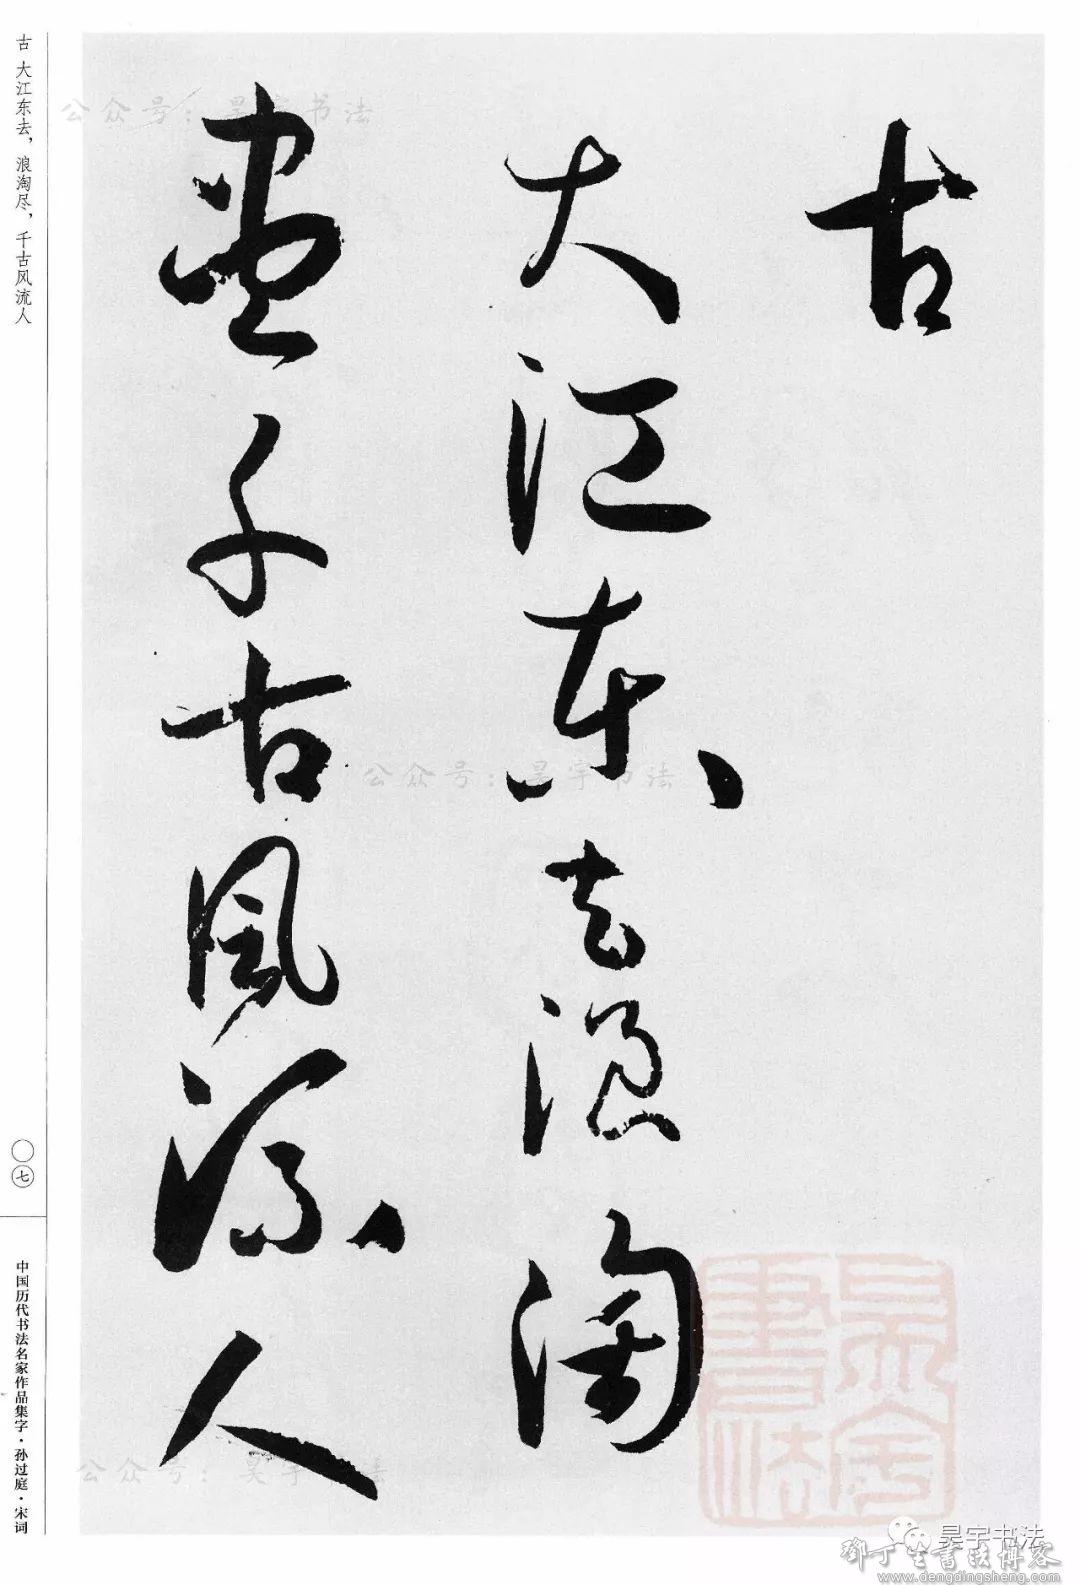 古
大江东去浪淘
尽千古风流人
古 大江东去，浪淘尽，千古风流人
〇七
中国历代书法名家作品集字·孙过庭·宋词
公众号：昊宇书法
公众号：昊宇书法
公众号：昊宇书法
昊宇書法
昊宇书法
鄧丁生書法博客
www.dengdingsheng.com